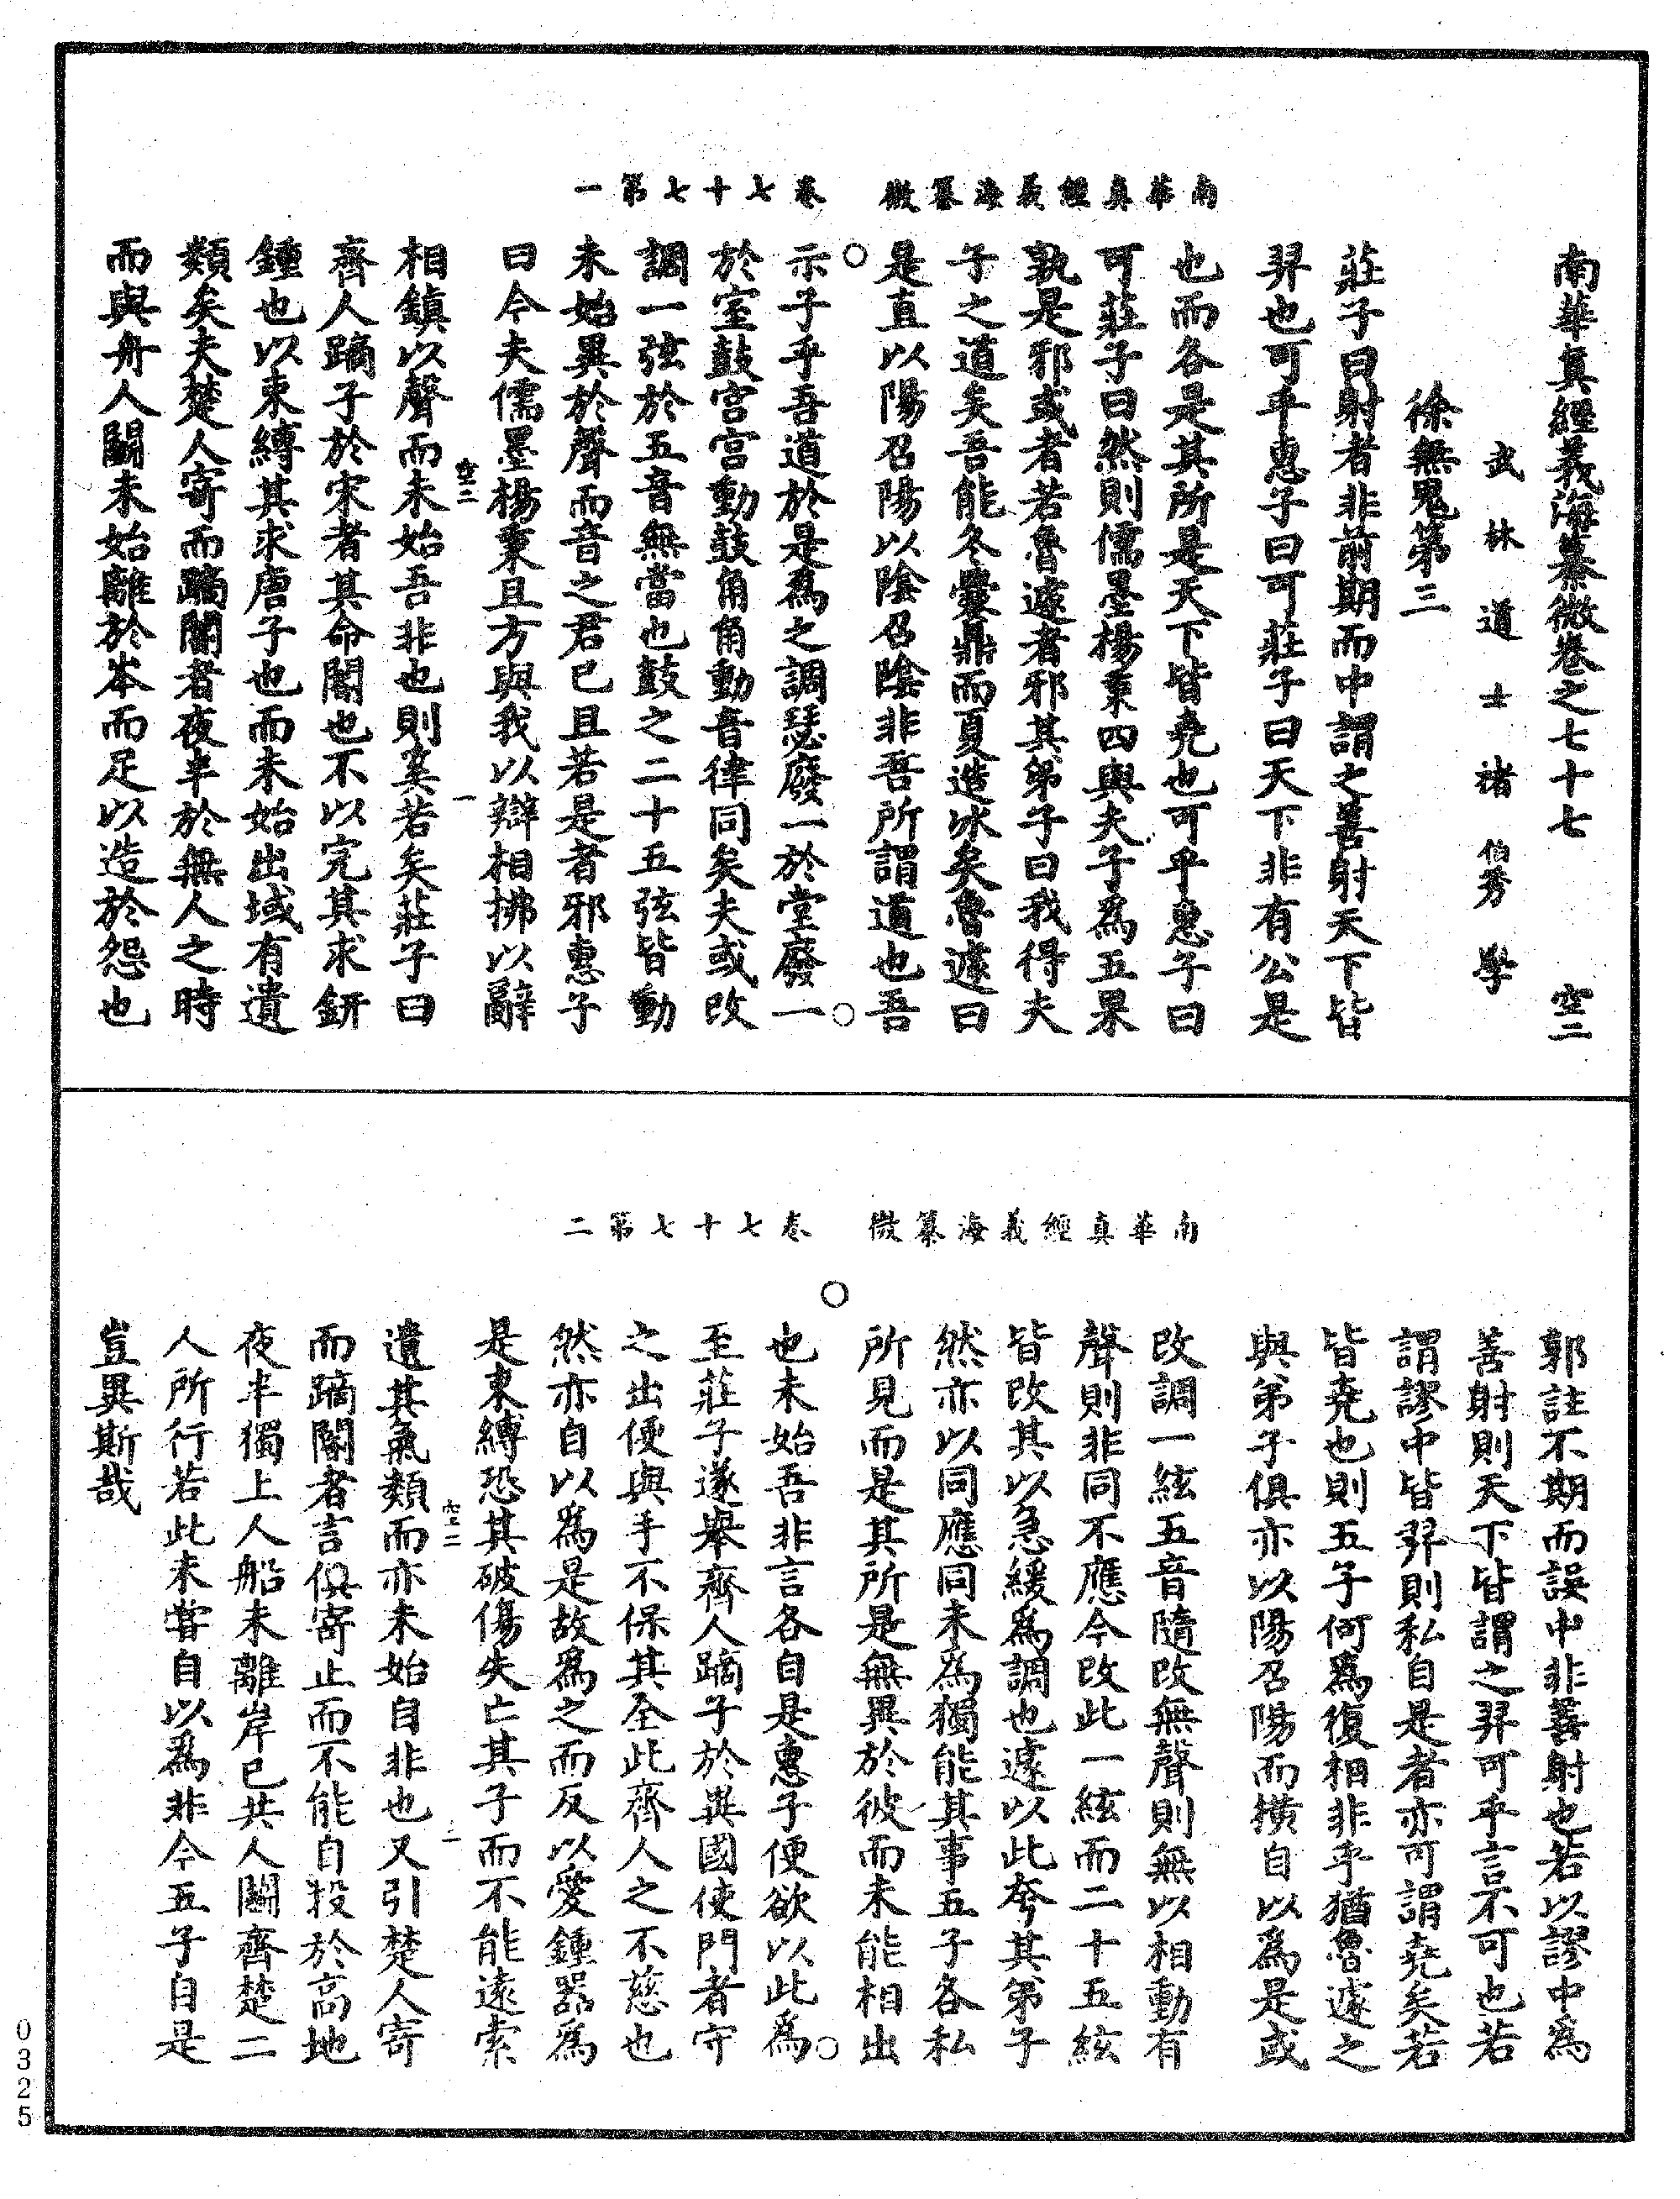 南華真經義海纂微　卷七十七第一
南華真經義海纂微卷之七十七　空二
武林道士褚伯秀學
徐無鬼第三
莊子曰射者非前期而中謂之善射天下皆
羿也可乎惠子曰可莊子曰天下非有公是
也而各是其所是天下皆堯也可乎惠子曰
可莊子曰然則儒墨楊秉四與夫子為五果
孰是邪或者若魯遽者邪其弟子曰我得夫
子之道矣吾能冬爨鼎而夏造冰矣魯遽曰
是直以陽召陽以陰召陰非吾所謂道也吾
示子乎吾道於是為之調瑟廢一於堂廢一
於室鼓宮宮動鼓角角動音律同矣夫或改
調一弦於五音無當也鼓之二十五弦皆動
未始異於聲而音之君已且若是者邪惠子
曰今夫儒墨楊秉且方與我以辯相拂以辭
空二　一
相鎮以聲而未始吾非也則奚若矣莊子曰
齊人蹢子於宋者其命閽也不以完其求鈃
鍾也以束縛其求唐子也而未始出域有遺
類矣夫楚人寄而蹢閽者夜半於無人之時
而與舟人鬭未始離於岑而足以造於怨也
南華真經義海纂微　卷七十七第二
郭註不期而誤中非善射也若以謬中為
善射則天下皆謂之羿可乎言不可也若
謂謬中皆羿則私自是者亦可謂堯矣若
皆堯也則五子何為復相非乎猶魯遽之
與弟子俱亦以陽召陽而橫自以為是或
改調一絃五音隨改無聲則無以相動有
聲則非同不應今改此一絃而二十五絃
皆改其以急緩為調也遽以此夸其弟子
然亦以同應同未為獨能其事五子各私
所見而是其所是無異於彼而未能相出
也未始吾非言各自是惠子便欲以此為
至莊子遂舉齊人蹢子於異國使門者守
之出便與手不保其全此齊人之不慈也
然亦自以為是故為之而反以愛鍾器為
是束縛恐其破傷失亡其子而不能遠索
空二　二
遺其氣類而亦未始自非也又引楚人寄
而蹢閽者言俱寄止而不能自投於高地
夜半獨上人船未離岸已共人鬭齊楚二
人所行若此未嘗自以為非今五子自是
豈異斯哉
0325